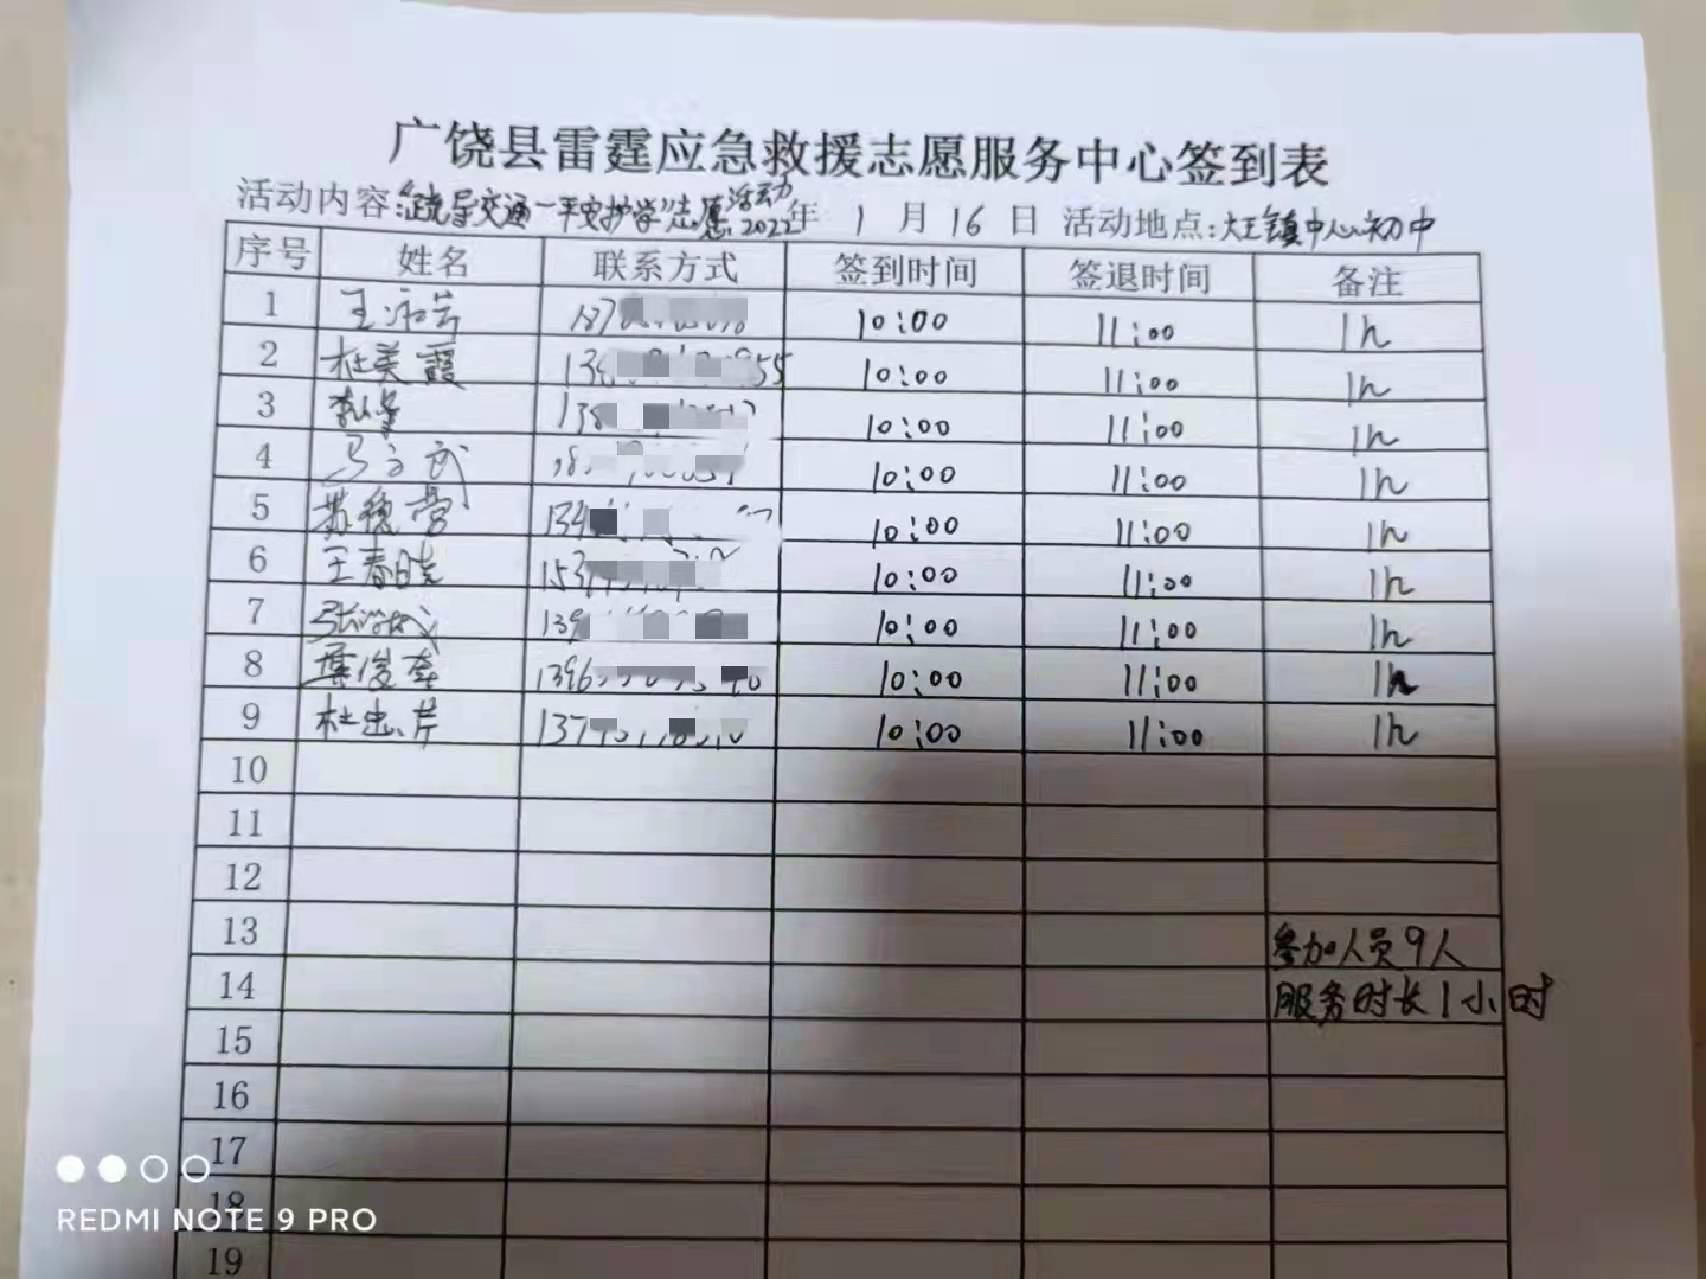 广饶县雷霆应急救援志愿服务中心签到表
活动内容:“疏导交通一平安护学”志愿活动 2022年 1 月 16 日 活动地点:大王镇中心初中
序号 姓名 联系方式 签到时间 签退时间 备注
1 王 187 10:00 11:00 1h
2 杜美霞 13 55 10:00 11:00 1h
3 138 10:00 11:00 1h
4 马立武 10:00 11:00 1h
5 苏德营 134 10:00 11:00 1h
6 王春晓 153 10:00 11:00 1h
7 张 139 10:00 11:00 1h
8 俊 1396 10:00 11:00 1h
9 杜忠芹 137 10:00 11:00 1h
10
11
12
13 参加人员9人
14 服务时长1小时
15
16
17
18
19
REDMI NOTE 9 PRO